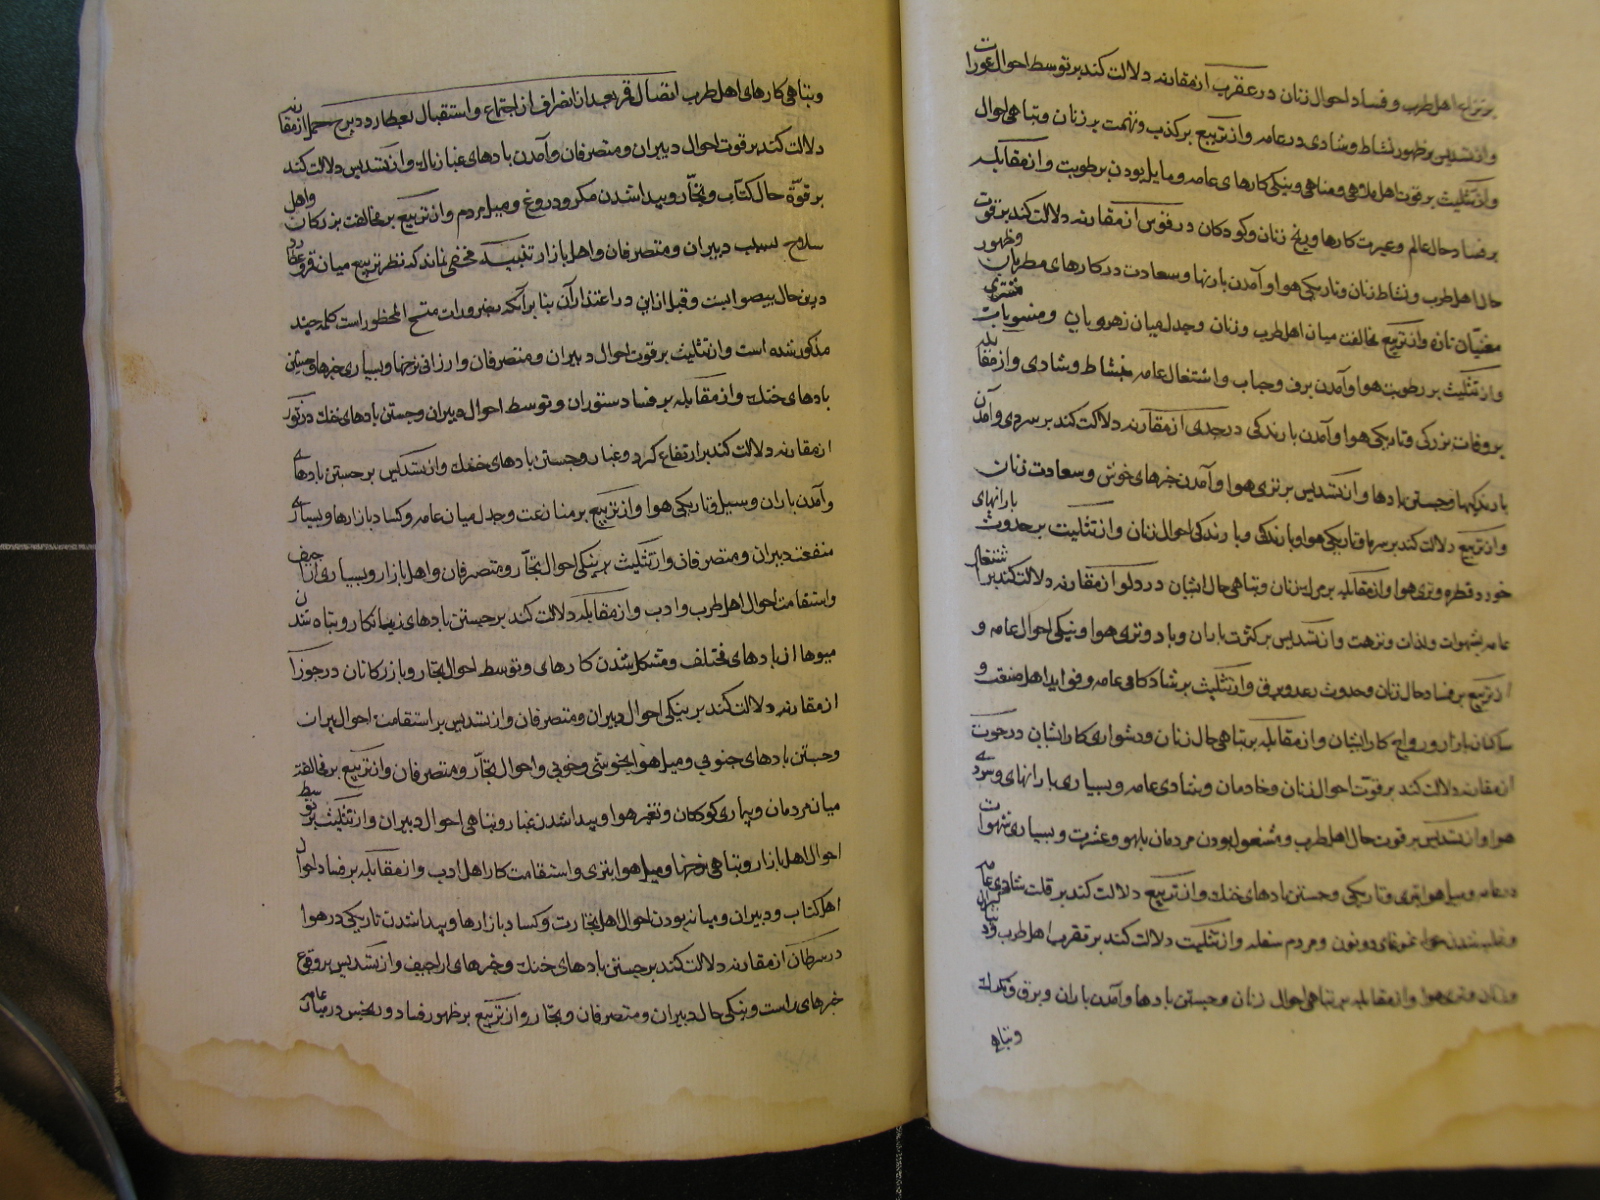 بر تنزل اهل طرب و فساد احوال زنان در عقرب از مقارنه دلالت کند بر توسط احوال عورات
و از تسدیس بر ظهور نشاط و شادی در عامه و از تربیع بر کذب و تهمت بر زنان و تباهی احوال
و از تثلیث بر قوت اهل ملاهی و مناهی و نیکی کارهای عامه و مایل بودن بر طوبت و از مقابله
بر فساد حال عالم و عسرت کارها و رنج زنان و کودکان در قوس از مقارنه دلالت کند بر قوت
حال اهل طرب و نشاط زنان و تاریکی هوا و آمدن بارانها و سعادت در کارهای مطربان و ظهور
مغنیان تازه و از تربیع مخالفت میان اهل طرب و زنان و جدل میان زهرویان و منسوبات مشتری
و از تثلیث بر رطوبت هوا و آمدن برف و اشتغال عامه بنشاط و شادی و از مقابله
بر وفات بزرکی و تاریکی هوا و آمدن بارندکی در جدی از مقارنه دلالت کند بر سردی و آمدن
بارندکیها و جستن بادها و از تسدیس بر تری هوا و آمدن خبرهای خوش و سعادت زنان
و از تربیع دلالت کند بر سرما و تاریکی هوا و بارندکی احوال زنان و از تثلیث بر حدوث بارانهای
خورد قطره و تری هوا و از مقابله زنان و تباهی حال ایشان در دلو از مقارنه دلالت کند بر اشتغال
عامه بشهوات و لذات و نزهت و از تسدیس بر کثرت باران و باد و تری هوا و نیکی احوال عامه و
از تربیع بر فساد حال زنان و حدوث رعد و برق و از تثلیث بر شادکامی عامه و فواید اهل صنعت و
ساکنان بازار و رواج کار ایشان و از مقابله بر تباهی حال زنان و دشواری کار ایشان در حوت
از مقارنه دلالت کند بر قوت احوال زنان و خادمان و شادی عامه و بسیاری بارانهای و سردی
هوا و از تسدیس بر قوت حال اهل طرب و مشغول بودن مردمان بلهو و عشرت و بسیاری شهوات
در عامه و میل هوا بتری و تاریکی و جستن بادهای خنک و از تربیع دلالت کند بر قلت شادی عامه
و مردم سفله و از تثلیث دلالت کند بر تقرب اهل طرب و دبیران
و تری هوا و از مقابله بر تباهی احوال زنان و جستن بادها و آمدن باران و برق
و تباه
و تباهی کارهای اهل طرب اتصال قمر بعد از انصراف از اجتماع و استقبال بعطارد در برج حمل از مقارنه
دلالت کند بر قوت احوال دبیران و متصرفان و آمدن بادهای غبارناک و از تسدیس دلالت کند
بر قوّة حال کتّاب و تجّار و پیدا شدن مکر و دروغ و میل مردم و از تربیع بر مخالفت بزرکان و اهل
سلاح بسبب دبیران و متصرفان و اهل بازار تنبیه مخفی نماند که نظر تربیع میان قمر و عطارد
درین حال بیصوابست و قبل ازین در اعتذار آن بنا بر آنکه ضرورات المحظور است کلمه چند
مذکور شده است و از تثلیث بر قوت احوال دبیران و متصرفان و ارزانی نرخها و بسیاری خبرها و جستن
بادهای خنک و از مقابله بر فساد دستوران و توسط احوال دبیران و جستن بادهای خنک در ثور
از مقارنه دلالت کند بر ارتفاع کرد و غبار و جستن بادهای خنک و از تسدیس بر جستن بادهای
و آمدن باران و سیل و تاریکی هوا و از تربیع بر منازعت و جدل میان عامه و کساد بازارها و بسیاری
منفعت دبیران و متصرفان و از تثلیث بر نیکی احوال تجّار و متصرفان و اهل بازار و بسیاری اراجیف
و استقامت احوال اهل طرب و ادب و از مقابله دلالت کند بر جستن بادهای زیانکار و تباه شدن
میوها از بادهای مختلف و مشکل شدن کارهای و توسط احوال تجار و بازرکانان در جوزا
از مقارنه دلالت کند بر نیکی احوال دبیران و متصرفان و از تسدیس بر استقامت احوال پیران
و جستن بادهای جنوبی و میل هوا بخوشی و خوبی و احوال تجّار و متصرفان و از تربیع بر مخالفت
میان مردمان و بیماری کودکان و تغیر هوا و پیدا شدن غبار و تباهی احوال دبیران و از تثلیث بر توسط
احوال اهل بازار و تباهی نرخها و میل هوا بتری و استقامت کار اهل ادب و از مقابله بر فساد احوال
اهل کتاب و دبیران و میانه بودن احوال اهل تجارت و کساد بازارها و پیدا شدن تاریکی در هوا
در سرطان از مقارنه دلالت کند بر جستن بادهای خنک و خبرهای اراجیف و از تسدیس بر وقوع
خبرهای راست و نیکی حال دبیران و متصرفان و تجّار و از تربیع بر ظهور فساد و رنجش در میان عامه